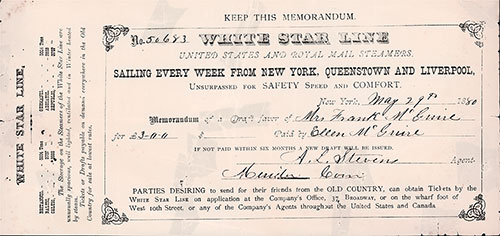 KEEP THIS MEMORANDUM.
No. 50683 WHITE STAR LINE
UNITED STATES AND ROYAL MAIL STEAMERS.
SAILING EVERY WEEK FROM NEW YORK, QUEENSTOWN AND LIVERPOOL,
UNSURPASSED FOR SAFETY SPEED AND COMFORT.
New York, May 29th 1880
Memorandum of a Draft favor of Mrs Frank McGuire
for £3-0-0 $ Paid by Ellen McGuire
IF NOT PAID WITHIN SIX MONTHS A NEW DRAFT WILL BE ISSUED.
A. L. Stevens Agent.
Meriden Conn
PARTIES DESIRING to send for their friends from the OLD COUNTRY, can obtain Tickets by
the WHITE STAR LINE on application at the Company's Office, 37 BROADWAY, or on the wharf foot of
West 10th Street, or any of the Company's Agents throughout the United States and Canada.
WHITE STAR LINE,
The Steerage on the Steamers of the White Star Line is
unusually spacious, well lighted, ventilated and in Winter heated
by steam.
Tickets or Drafts payable on demand everywhere in the Old
Country for sale at lowest rates.